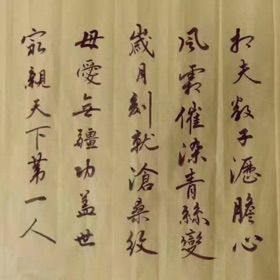 相夫教子瀝膽心
風霜催染青絲變
歲月刻就滄桑紋
母愛無疆功蓋世
最親天下第一人